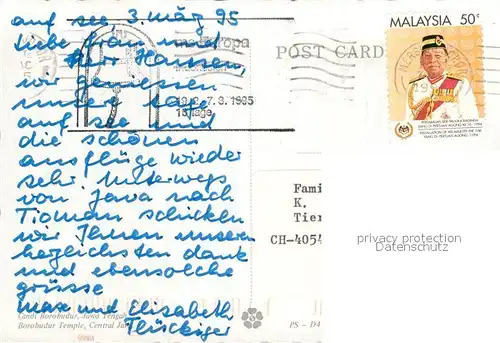 auf see 3. märz 95
liebe frau und
Herr Hansen,
wir geniessen
unsere tage
auf see und
die schönen
ausflüge wieder
sehr. Unterwegs
von Java nach
Tioman schicken
wir Ihnen unseren
herzlichsten dank
und ebensolche
grüsse
Max und Elisabeth
Flückiger
Candi Borobudur, Jawa Tengah
Borobudur Temple, Central
PS - D4
POST CARD
MALAYSIA 50¢
7.3.1995
Fami
K.
Tier
CH-4054
privacy protection
Datenschutz